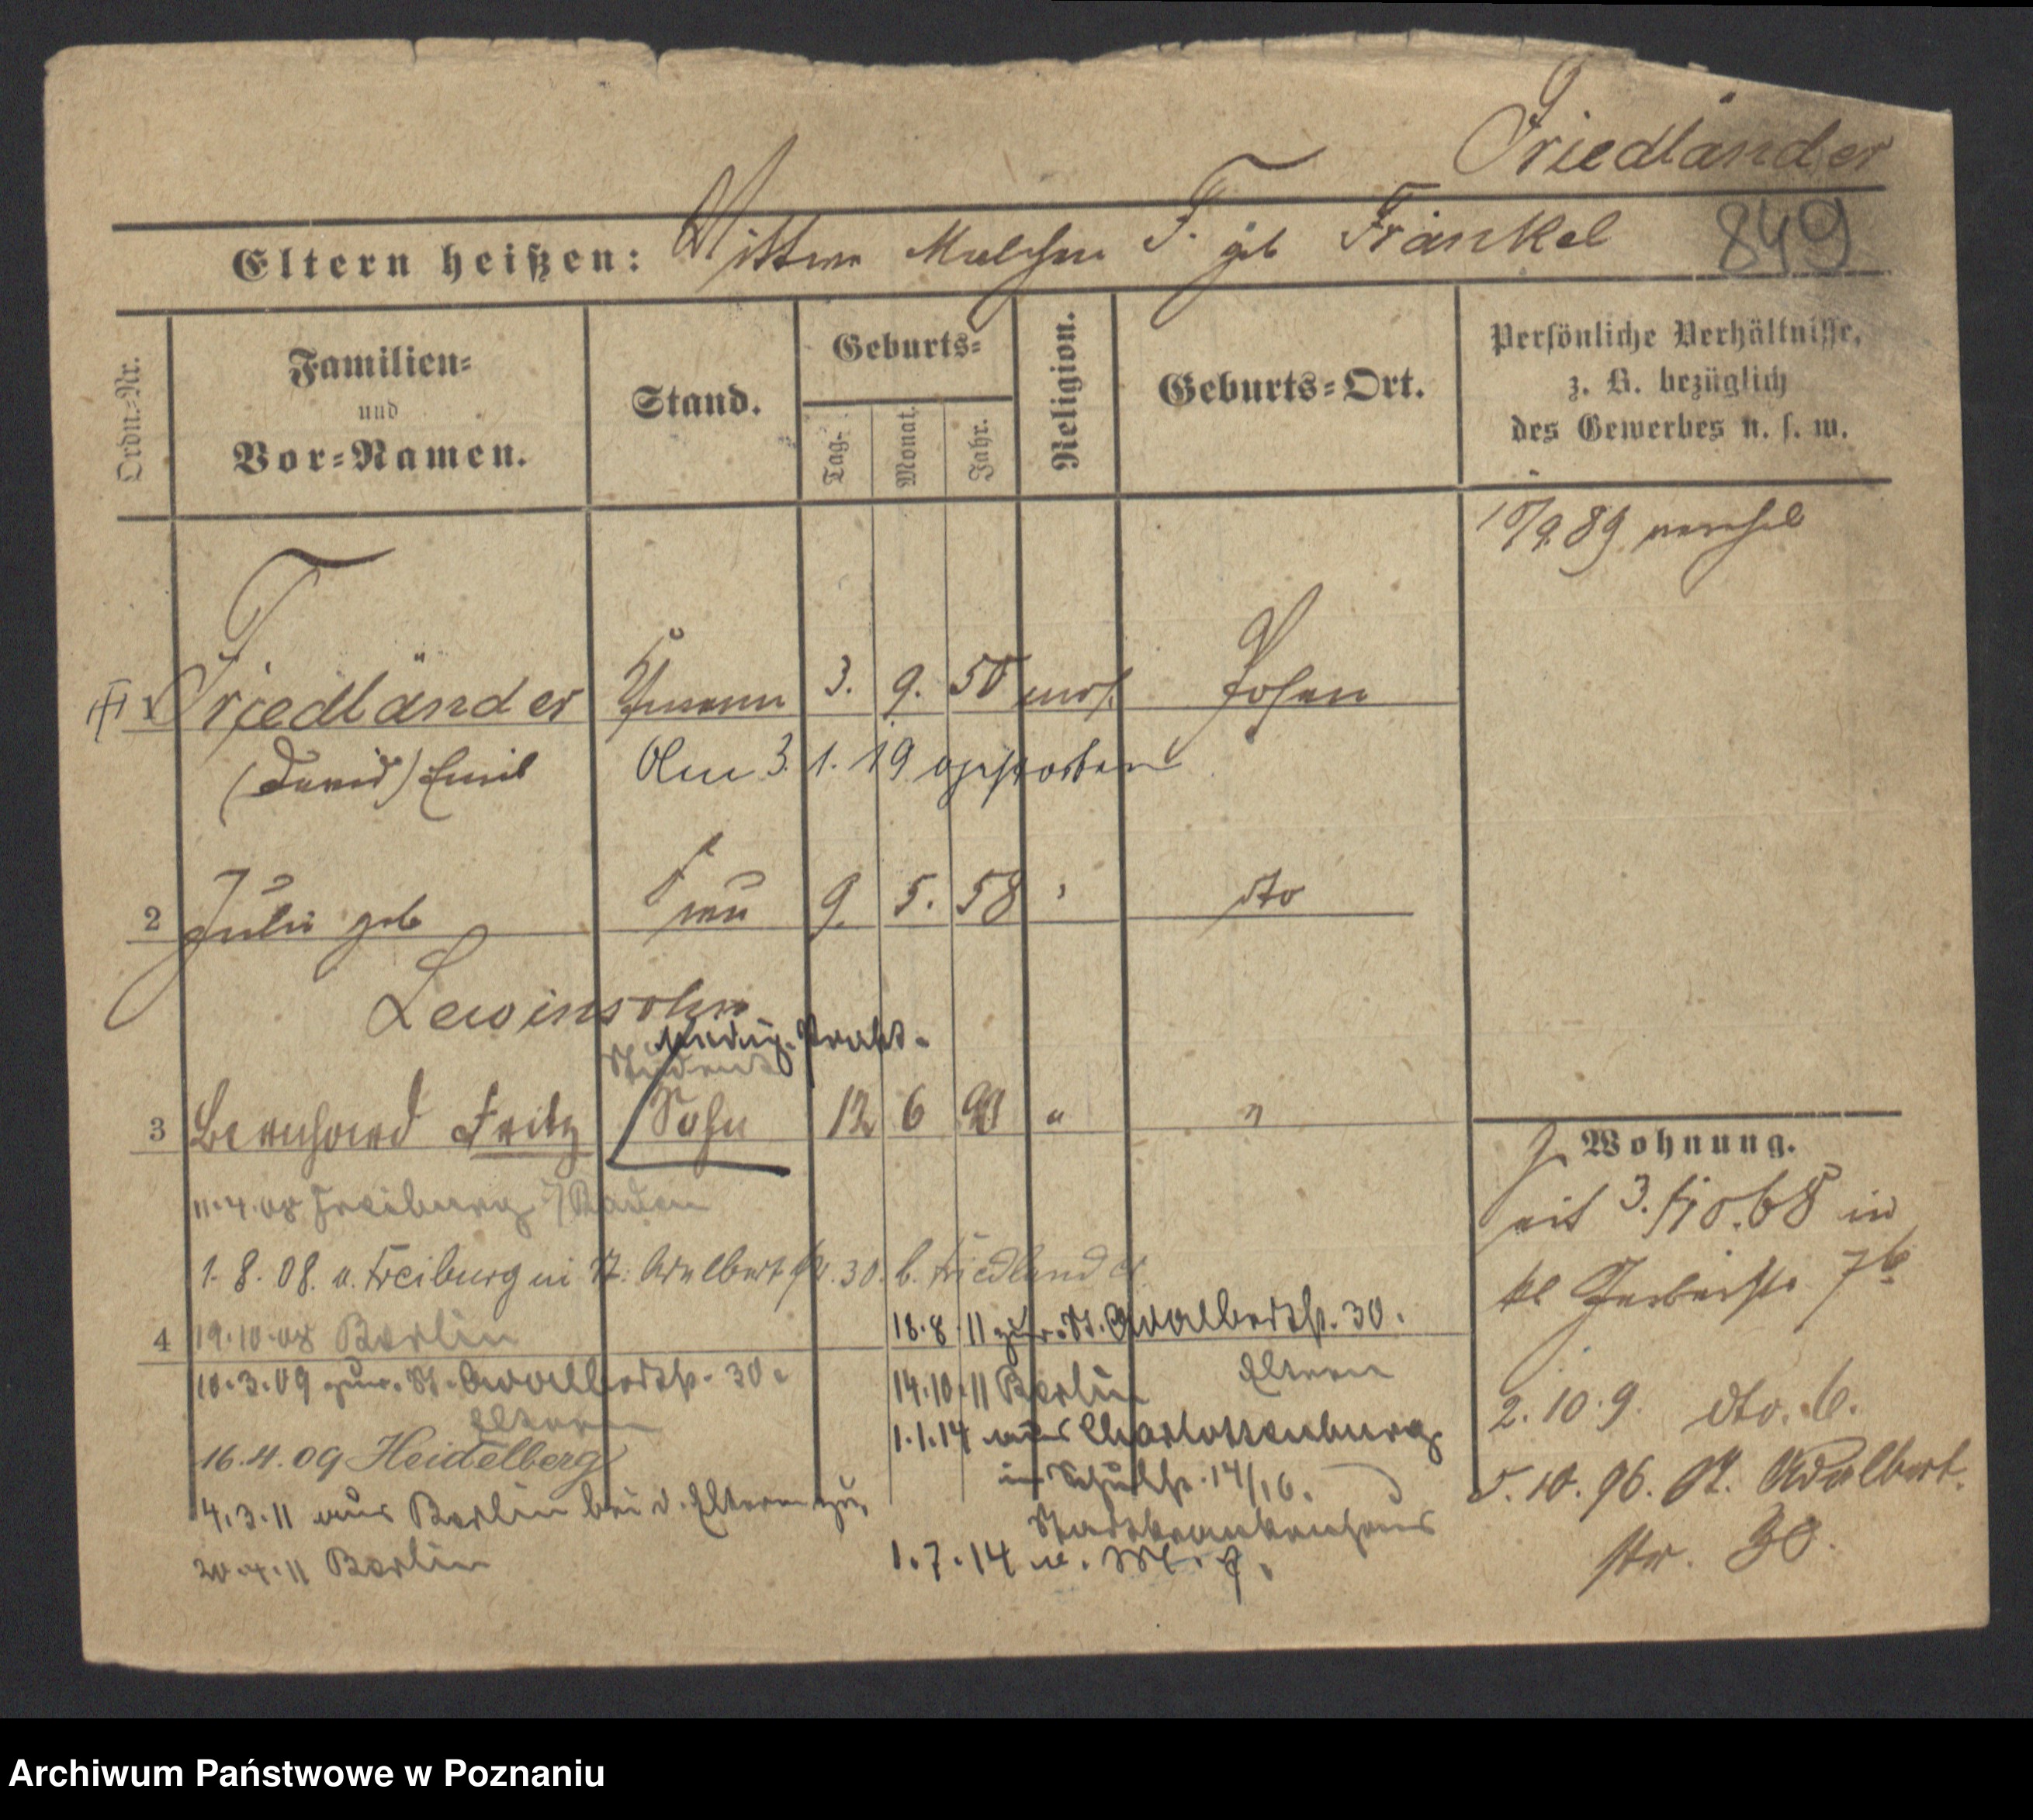 Friedländer
Eltern heißen: Wittwe Malchen F. geb Fränkel 849
Ordn.-Nr.
Familien-
und
Vor-Namen.
Stand.
Geburts-
Tag.
Monat.
Jahr.
Religion.
Geburts-Ort.
Persönliche Verhältnisse,
z. B. bezüglich
des Gewerbes u. s. w.
89
1 Friedländer 3. 9. 50 mos. Posen
(David) Emil Am 3. 1. 19 gestorben
2 Julie geb Frau 9. 5. 58 " dto
Lewinsohn
Mediz. Prakt.
Student
3 Bernhard Fritz Sohn 12 6 " "
11.4.08 Freiburg i/Baden
1. 8. 08. a. Freiburg in St. Adalbertstr. 30. b. Friedländer
4 19.10.08 Berlin
10.3.09 zur. St. Adalbertstr. 30.
Eltern
16.4.09 Heidelberg
4.3.11 aus Berlin bei d. Eltern zur.
20.4.11 Berlin
18.8.11 zur. St. Adalbertstr. 30.
Eltern
14.10.11 Berlin
1.1.14 aus Charlottenburg
in Schulstr. 14/16.
Stadtkrankenhaus
1.7.14 n.
Wohnung.
seit 3./10.68 in
kl Gerberstr 7b
2. 10. 9. dto. 6.
5. 10. 96. St. Adalbert-
str. 30.
Archiwum Państwowe w Poznaniu